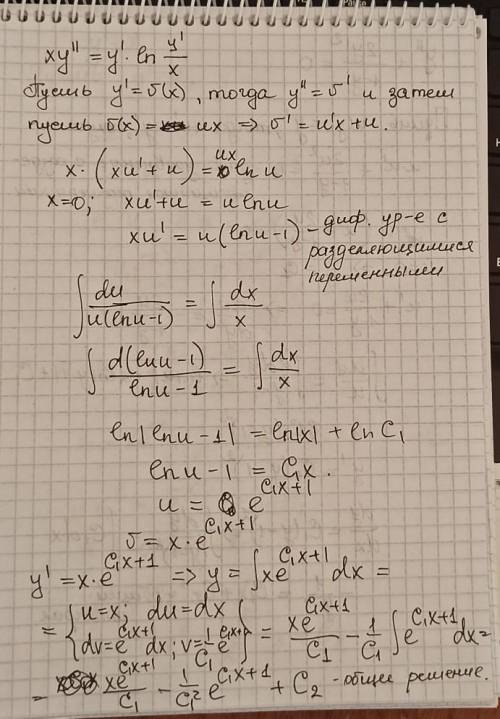 xy'' = y' · ln y'/x
Пусть y' = υ(x), тогда y'' = υ' и затем
пусть υ(x) = ux ⇒ υ' = u'x + u.
x · (xu' + u) = ux ln u
x=0; xu' + u = u ln u
xu' = u(ln u - 1) - диф. ур-е с
разделяющимися
переменными
∫ du/(u(ln u - 1)) = ∫ dx/x
∫ d(ln u - 1)/(ln u - 1) = ∫ dx/x
ln|ln u - 1| = ln|x| + ln C₁
ln u - 1 = C₁x.
u = e^(C₁x+1)
υ = x · e^(C₁x+1)
y' = x · e^(C₁x+1) ⇒ y = ∫ xe^(C₁x+1) dx =
= {u = x; du = dx
dv = e^(C₁x+1) dx; v = 1/C₁ e^(C₁x+1)} = xe^(C₁x+1)/C₁ - 1/C₁ ∫ e^(C₁x+1) dx =
= xe^(C₁x+1)/C₁ - 1/C₁² e^(C₁x+1) + C₂ - общее решение.